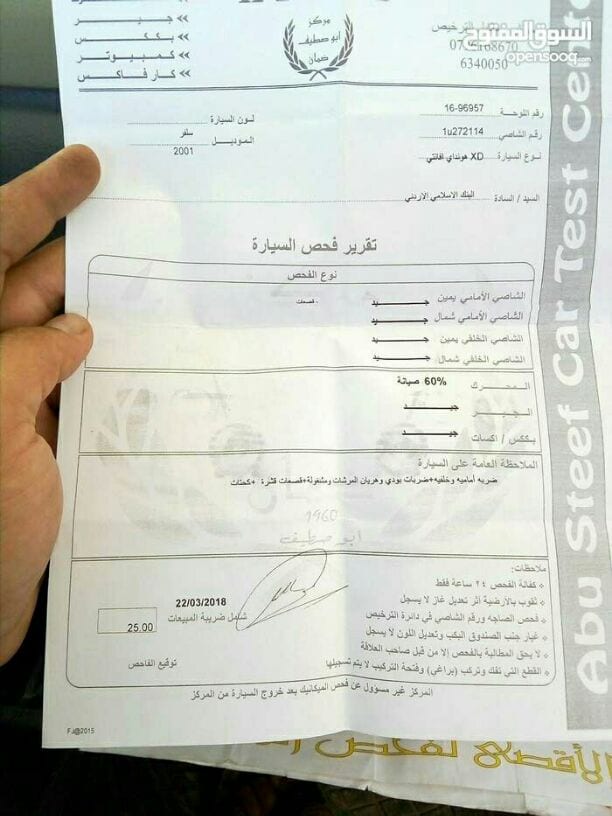 >> جير
>> بككس
>> كمبيوتر
>> كار فاكس
مركز
ابو صطيف
ضمان
الترخيص
6340050
السوق المفتوح
opensooq.com
رقم اللوحة 16-96957
رقم الشاصي 1u272114
نوع السيارة XD هونداي افانتي
لون السيارة سلفر
الموديل 2001
السيد / السادة البنك الاسلامي الاردني
تقرير فحص السيارة
نوع الفحص
الشاصي الأمامي يمين جيد - قصعات
الشاصي الأمامي شمال جيد
الشاصي الخلفي يمين جيد
الشاصي الخلفي شمال جيد
المحرك 60% صيانة
الجير جيد
بككس / اكسات جيد
الملاحظة العامة على السيارة
ضربه اماميه وخلفيه+ضربات بودي وهريان المرشات ومشغولة+قصعات قشرة +كحتات
1960
ابو صطيف
ملاحظات:
كفالة الفحص ٢٤ ساعة فقط
ثقوب بالارضية أثر تعديل غاز لا يسجل
فحص الصاجه ورقم الشاصي في دائرة الترخيص
غيار جنب الصندوق البكب وتعديل اللون لا يسجل
لا يحق المطالبة بالفحص إلا من قبل صاحب العلاقة
القطع التي تفك وتركب (براغي) وفتحة التركيب لا يتم تسجيلها
22/03/2018
شامل ضريبة المبيعات
25.00
توقيع الفاحص
المركز غير مسؤول عن فحص الميكانيك بعد خروج السيارة من المركز
FJ@2015
Abu Steef Car Test Cente
الأقصى لفحص